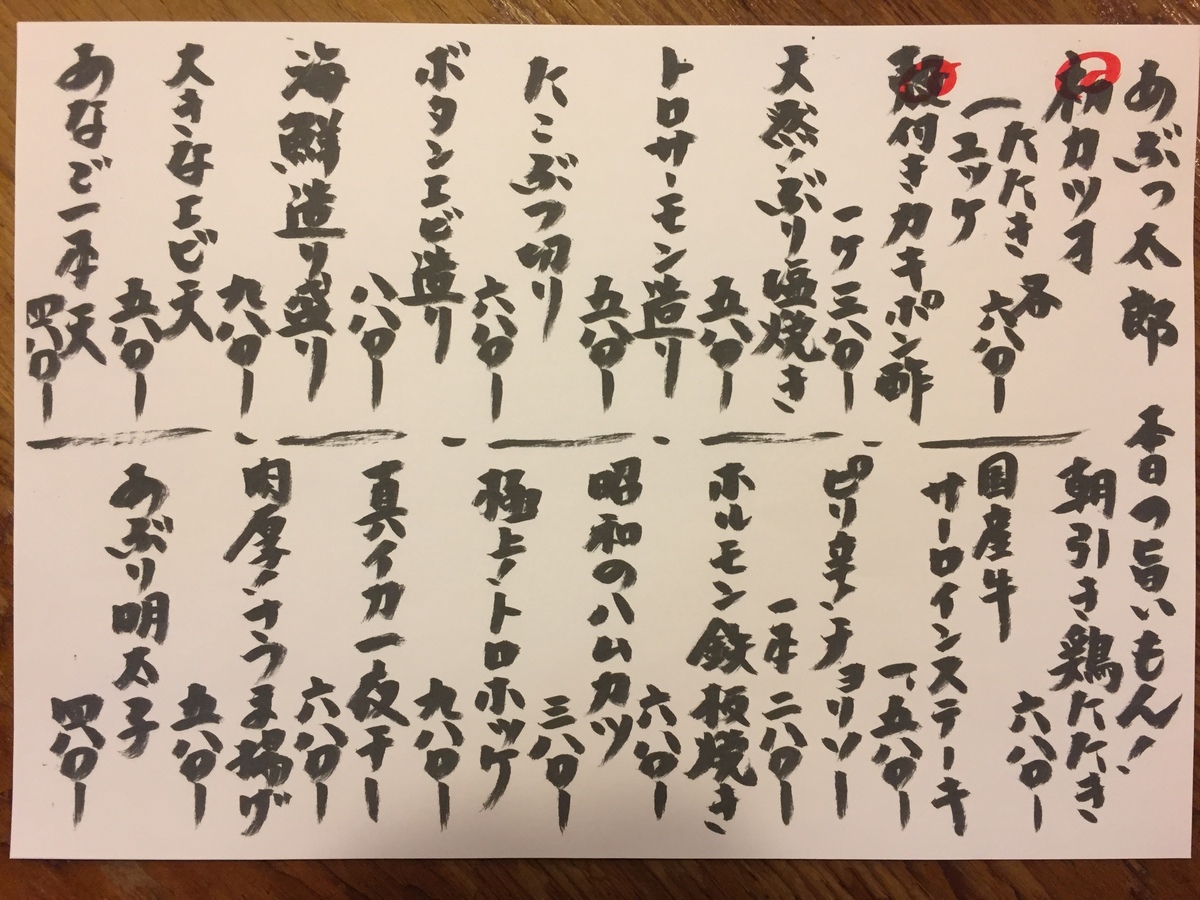 あぶっ太郎 本日つ旨いもん!
初カツオ
ーたたき
ーユッケ
各
六八〇ー
殻付きカキポン酢
一ケ三八〇ー
天然ぶり塩焼き
五八〇ー
トロサーモン造り
五八〇ー
たこぶつ切り
六八〇ー
ボタンエビ造り
八八〇ー
海鮮造り盛り
九八〇ー
大きなエビ天
五八〇ー
あなご一本天
四八〇ー
朝引き鶏たたき
六八〇ー
国産牛
サーロインステーキ
一、五八〇ー
ピリ辛チョリソー
一本二八〇ー
ホルモン鉄板焼き
六八〇ー
昭和のハムカツ
三八〇ー
極上トロホッケ
九八〇ー
真イカ一夜干し
六八〇ー
肉厚ナラうま揚げ
五八〇ー
あぶり明太子
四八〇ー